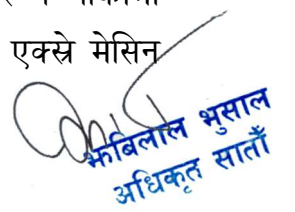 एक्स्रे मेसिन
झबिलाल भुसाल
अधिकृत सातौँ